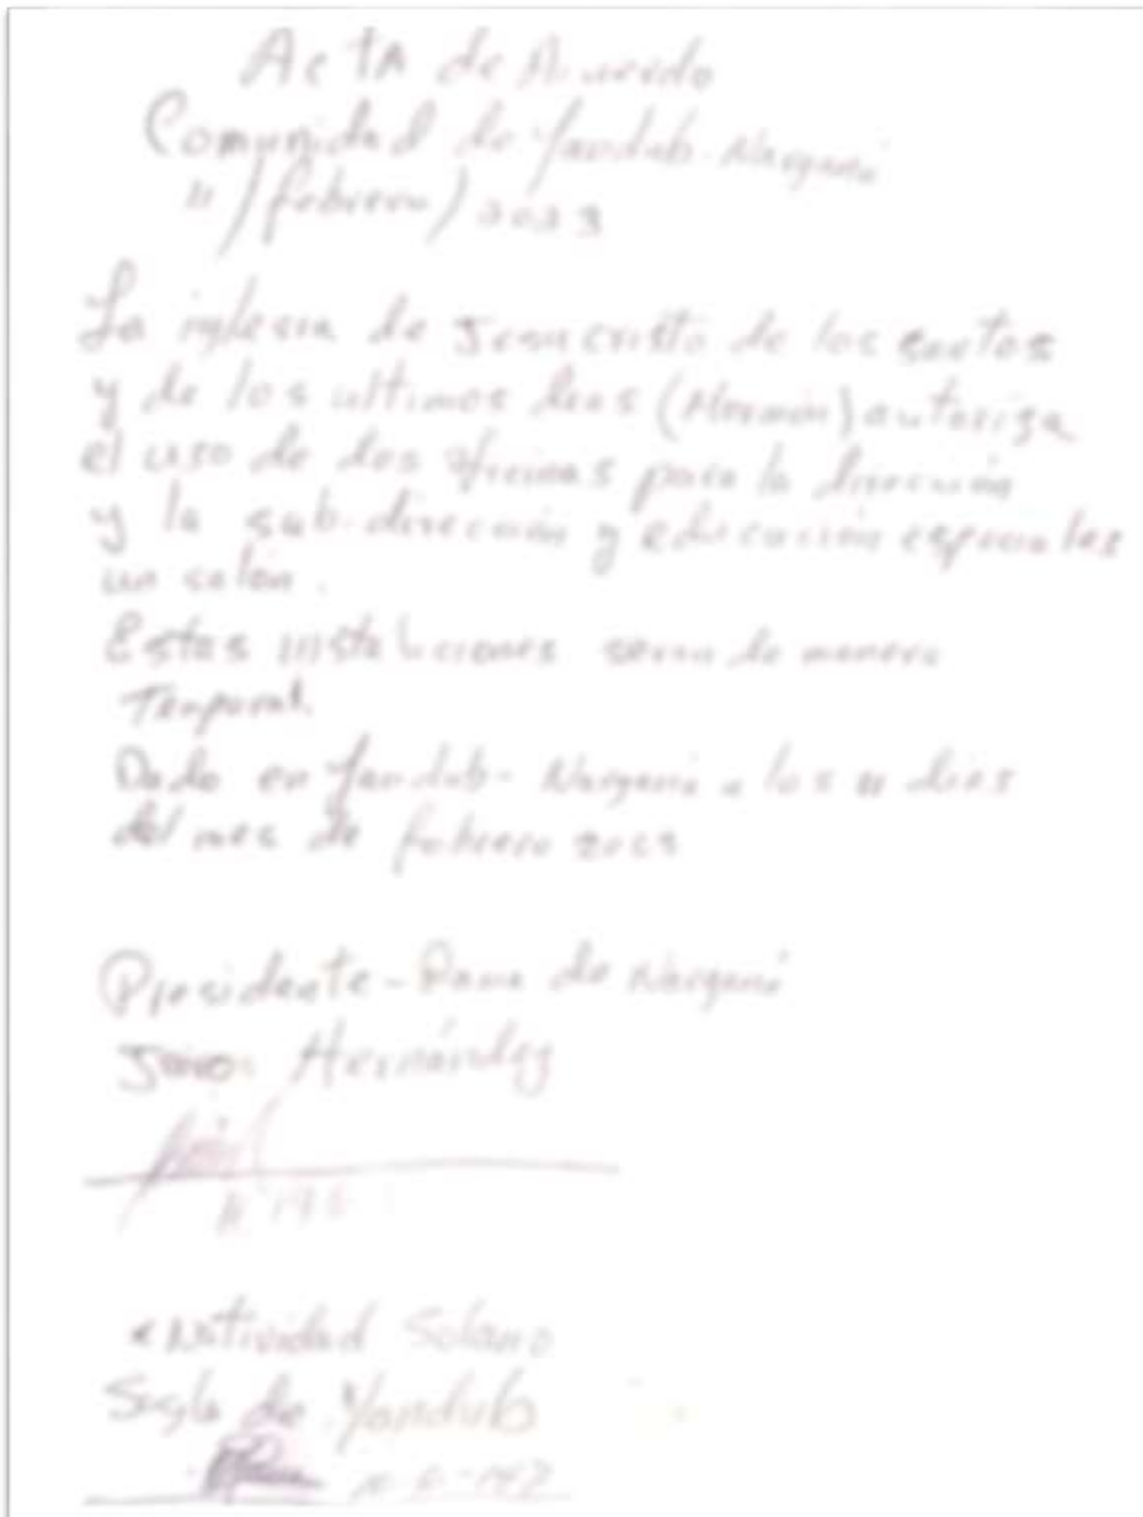 Acta de Acuerdo
Comunidad de Yandub-Narganá
11/febrero/2023
La iglesia de Jesucristo de los santos
y de los ultimos dias (Mormón) autoriza
el uso de dos oficinas para la dirección
y la sub-dirección y educación especiales
un salón.
Estas instalaciones seran de manera
Temporal.
Dado en Yandub-Narganá a los 11 dias
del mes de febrero 2023
Presidente - de Narganá
Hernández
Natividad Solano
de Yandub